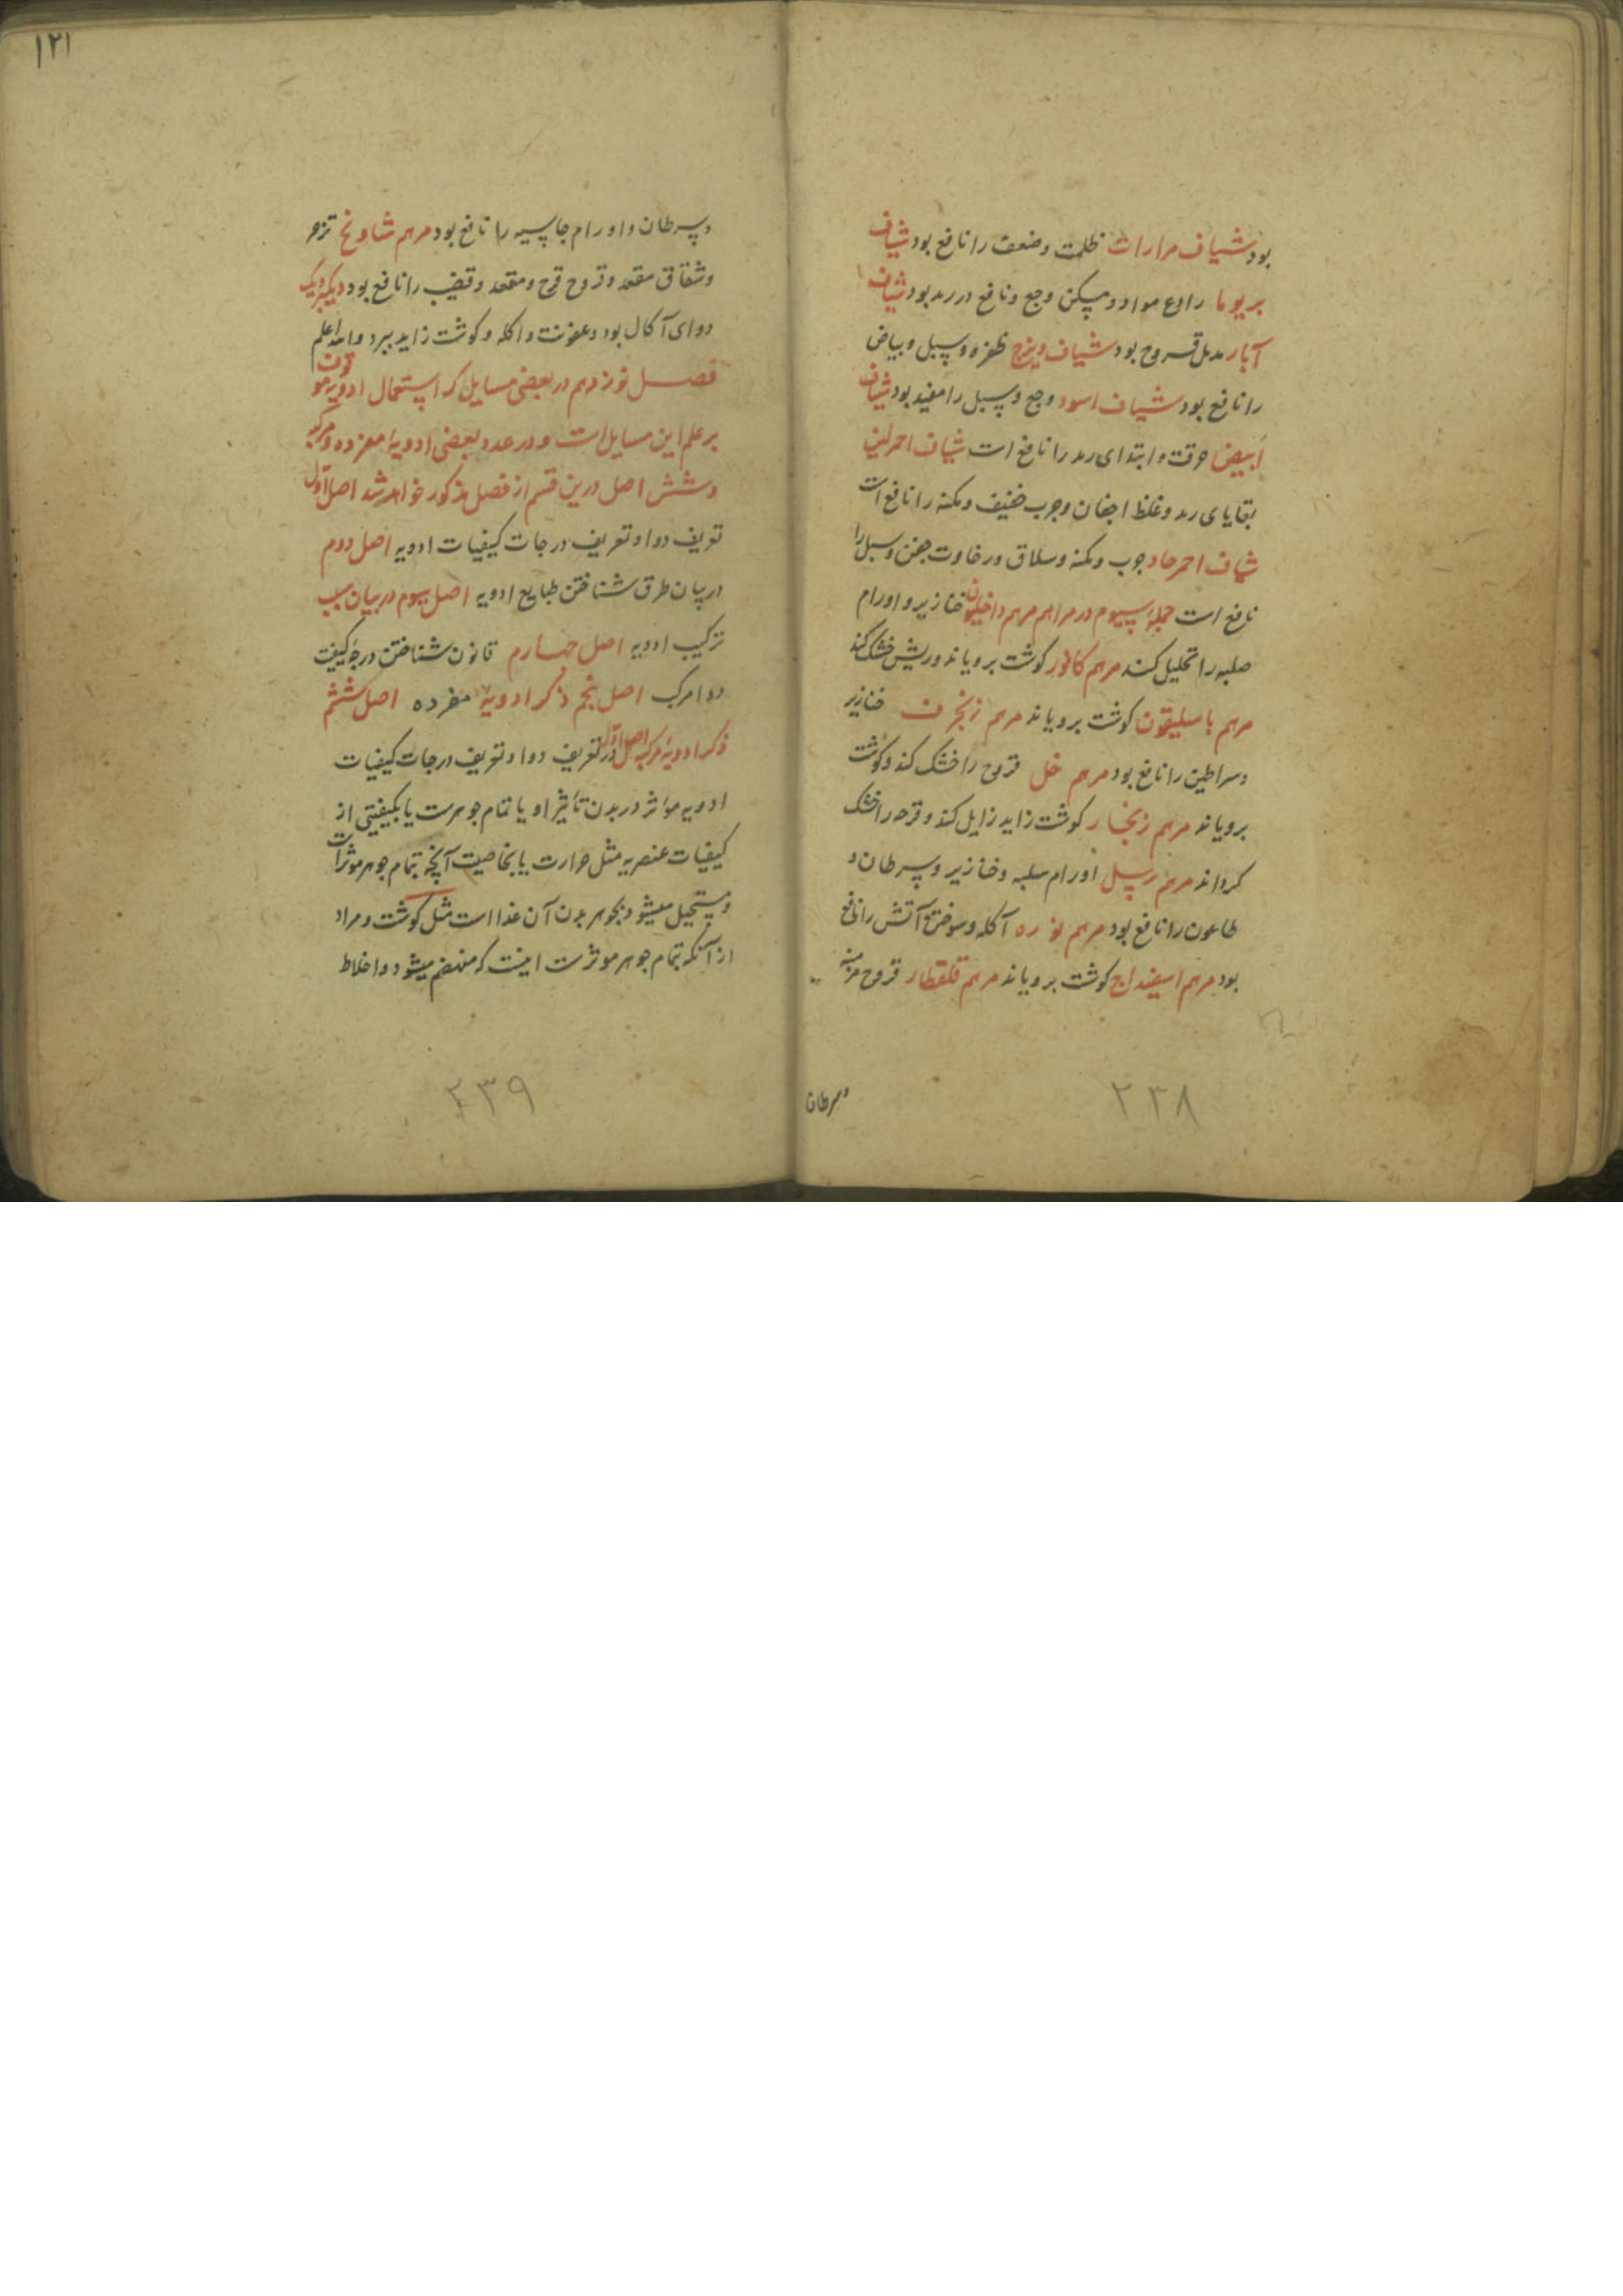 بود شیاف مرارات ظلمت وضعف را نافع بود شیاف
بریوما رادع مواد ومسکن وجع ونافع در رمد بود شیاف
آبار مدمل قروح بود شیاف ویزج ظفره وسبل وبیاض
را نافع بود شیاف اسود وجع وسبل را مفید بود شیاف
ابیض حرقت وابتدای رمد را نافع است شیاف احمرلین
بقایای رمد وغلظ اجفان وجرب خفیف وکمنه را نافع است
شیاف احمر حاد جرب وکمنه وسلاق ورخاوت جفن وسبل را
نافع است جمله سیوم در مراهم مرهم داخلیون خنازیر واورام
صلبه را تحلیل کند مرهم کافور کوشت برویاند وریش خشک کند
مرهم باسلیقون کوشت برویاند مرهم زنجرف خنازیر
وسراطین را نافع بود مرهم خل قروح را خشک کند وکوشت
برویاند مرهم زنجار کوشت زاید زایل کند وقرحه را خشک
کرداند مرهم رسل اورام صلبه وخنازیر وسرطان و
طاعون را نافع بود مرهم نوره آکله وسوختن آتش را نافع
بود مرهم اسفیداج کوشت برویاند مرهم قلقطار قروح مزمنه
وسرطان
۲۳۸
۱۲۱
وسرطان واورام جاسیه را نافع بود مرهم شاونج
وشقاق مقعد وقروح ومقعد وقضیب را نافع بود دیکبردیک
دوای آکال بود وعفونت واکله وکوشت زاید ببرد والله اعلم
فصل نوزدهم در بعضی مسایل که استعمال ادویه موقوف
بر علم این مسایل است ودر عدد بعضی ادویهٔ مفرده ومرکبه
وشش اصل درین قسم از فصل مذکور خواهد شد اصل اول
تعریف دوا وتعریف درجات کیفیات ادویه اصل دوم
در بیان طرق شناختن طبایع ادویه اصل سیوم در بیان سبب
ترکیب ادویه اصل چهارم قانون شناختن درجهٔ کیفیت
دوا مرکب اصل پنجم ذکر ادویهٔ مفرده اصل ششم
ذکر ادویهٔ مرکبه اصل اول در تعریف دوا وتعریف درجات کیفیات
ادویه مؤثر در بدن تأثیر او یا تمام جوهرست یا بکیفیتی از
کیفیات عنصریه مثل حرارت یا بخاصیت آنچه بتمام جوهر موثرات
ومستحیل میشود بجوهر بدن آن غذا است مثل کوشت ومراد
از آنکه بتمام جوهر موثرست اینست که منهضم میشود واخلاط
۲۳۹